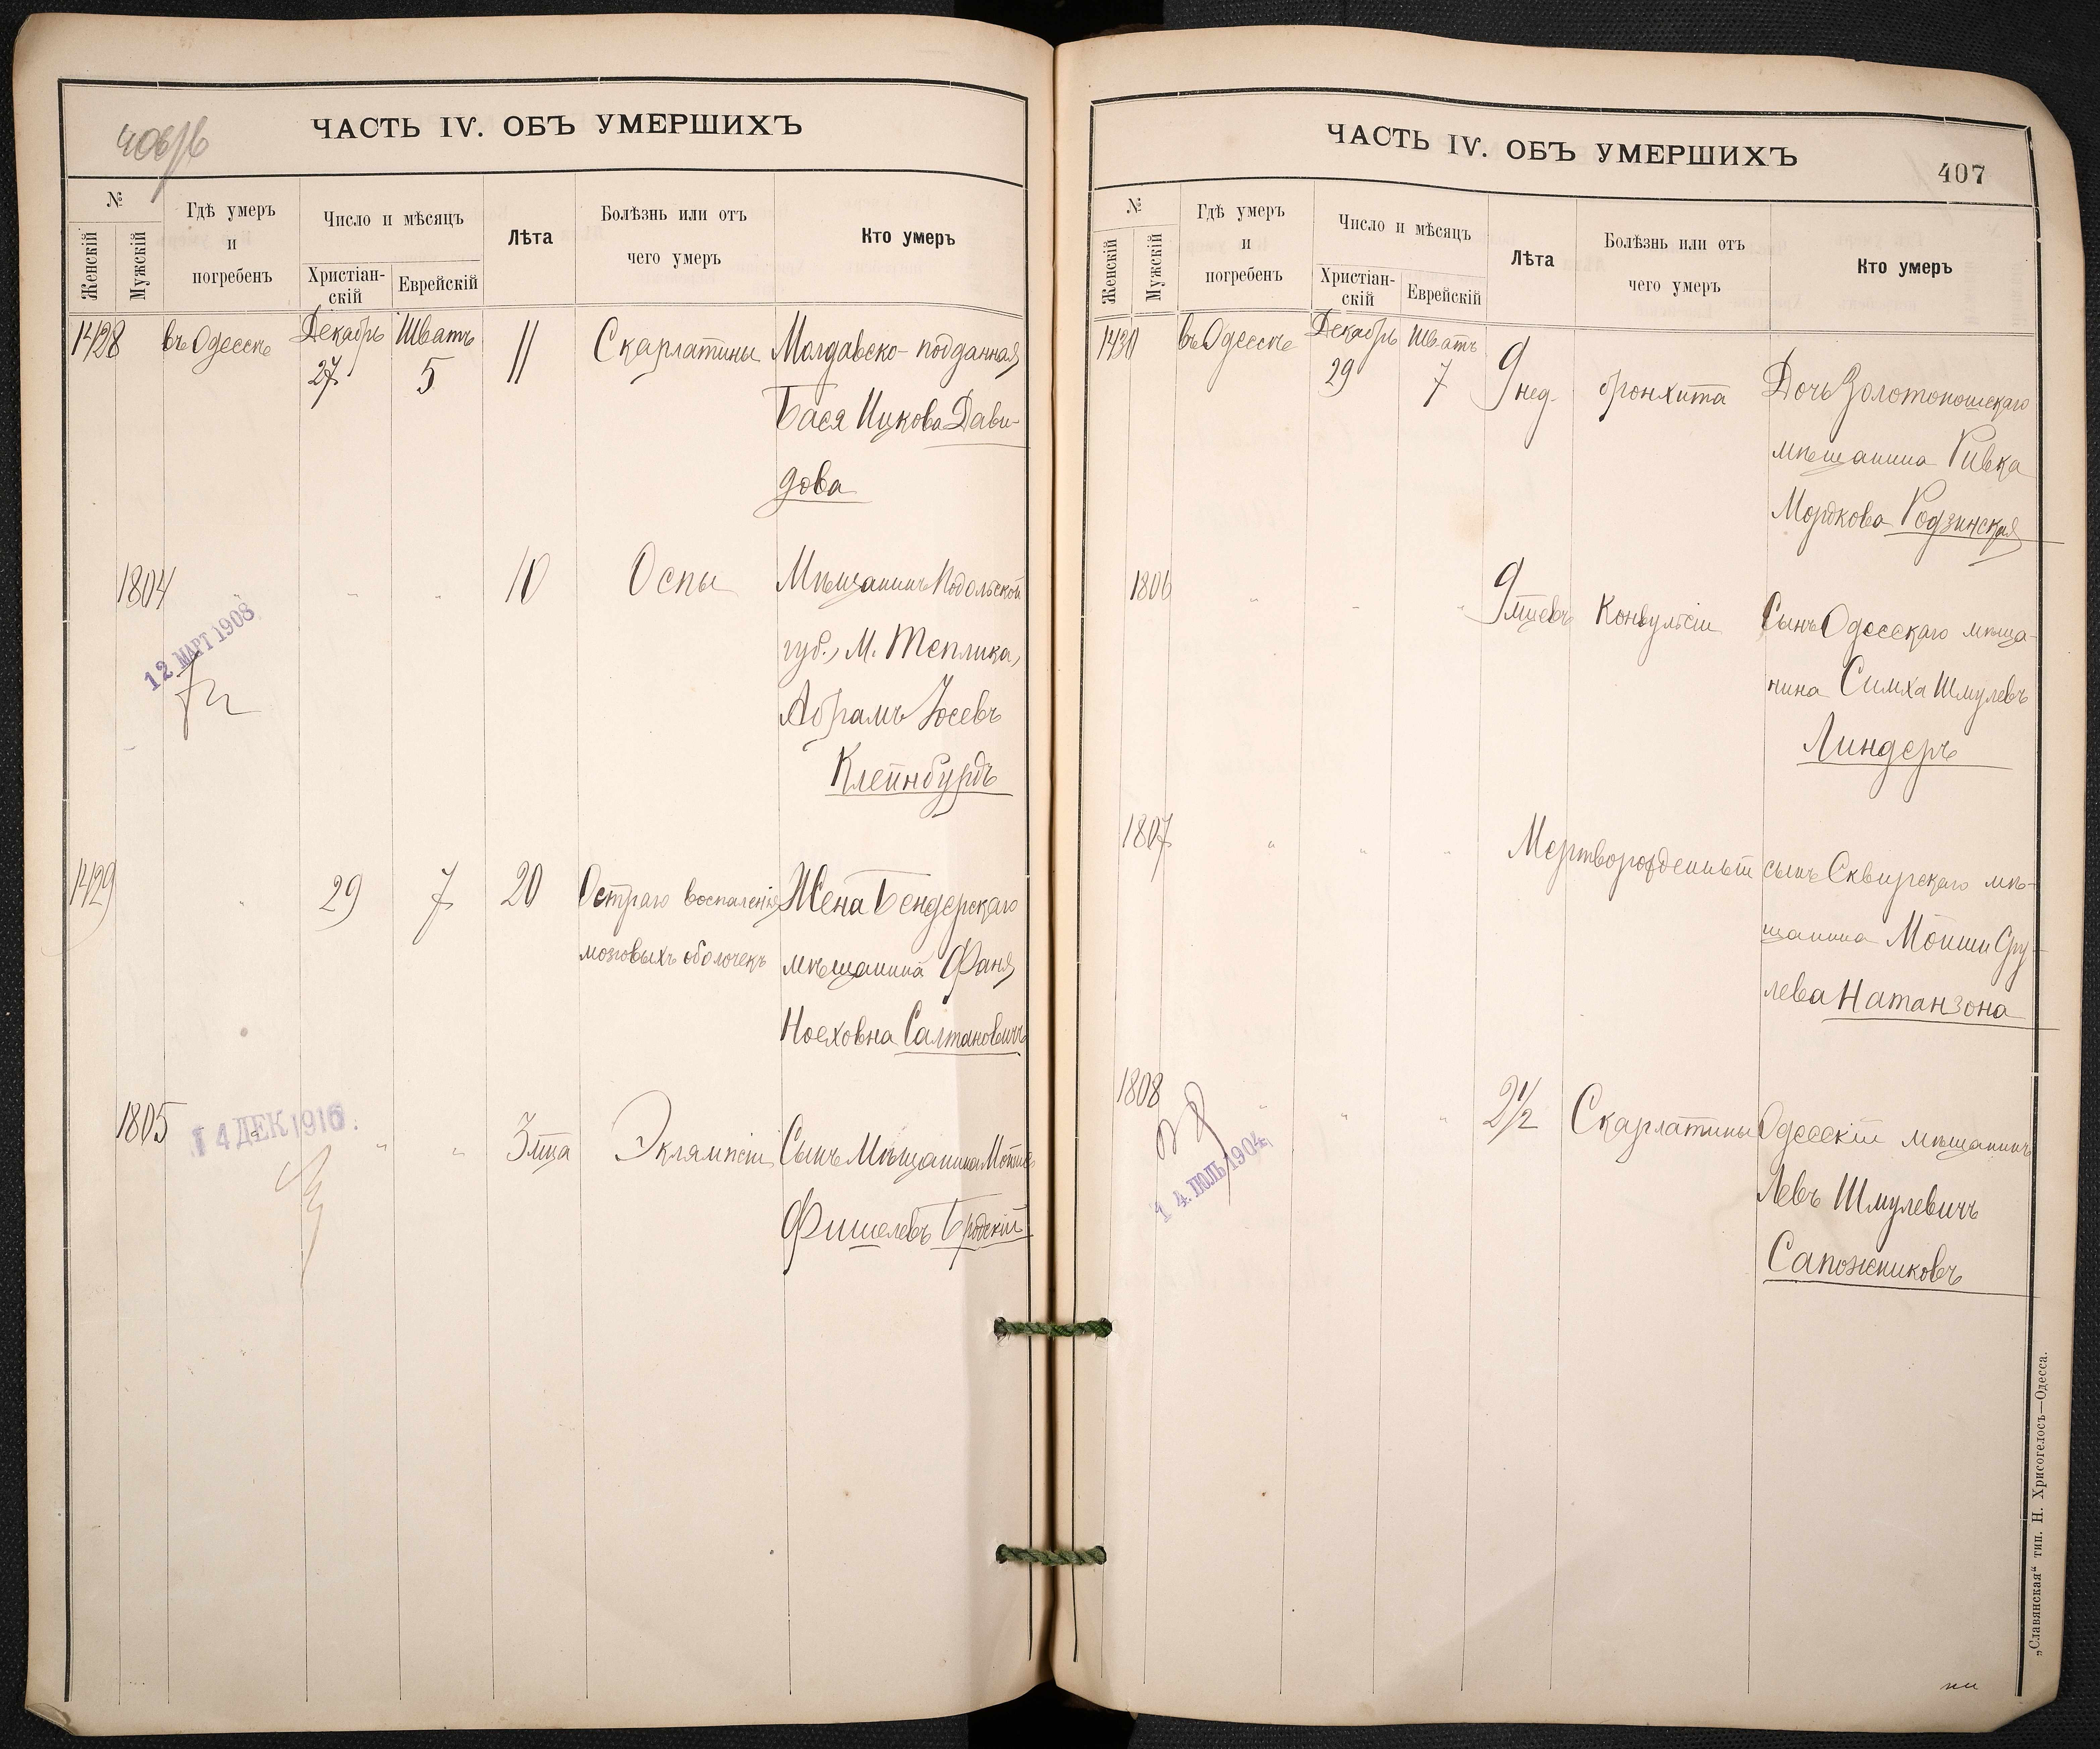 406/б
ЧАСТЬ IV. ОБЪ УМЕРШИХЪ
№
Женскій
Мужскій
Гдѣ умеръ
и
погребенъ
Число и мѣсяцъ
Христіан-
скій
Еврейскій
Лѣта
Болѣзнь или отъ
чего умеръ
Кто умеръ
1428 въ Одессѣ Декабрь Шватъ 11 Скарлатины Молдавско-подданная
27 5 Бася Ицкова Дави-
дова
1804 " " 10 Оспы Мѣщанинъ Подольской
губ., м. Теплика,
Абрамъ Іосевъ
Клейнбурдъ
12 МАРТ 1908
1429 " 29 7 20 Остраго воспаленія Жена Бендерскаго
мозговыхъ оболочекъ мѣщанина Фаня
Ноеховна Салтановичъ
1805 " " " 3 мца Эклямпсіи Сынъ Мѣщанина
Фишелевъ Бродскій
14 ДЕК 1916.
ЧАСТЬ IV. ОБЪ УМЕРШИХЪ
407
№
Женскій
Мужскій
Гдѣ умеръ
и
погребенъ
Число и мѣсяцъ
Христіан-
скій
Еврейскій
Лѣта
Болѣзнь или отъ
чего умеръ
Кто умеръ
1430 въ Одессѣ Декабрь Шватъ 9 нед. бронхита Дочь Золотоношскаго
29 7 мѣщанина Ривка
Мордкова Родзинская
1806 " " " 9 мцевъ Конвульсіи Сынъ Одесскаго мѣща-
нина Симха Шмулевъ
Линдеръ
1807 " " " Мертворожденный сынъ Сквирскаго мѣ-
щанина Мойши Сру-
лева Натанзона
1808 " " " 2 1/2 Скарлатины Одесскій мѣщанинъ
Левъ Шмулевичъ
Сапожниковъ
14. ІЮЛЬ 1904
„Славянская“ тип. Н. Хрисогелосъ—Одесса.